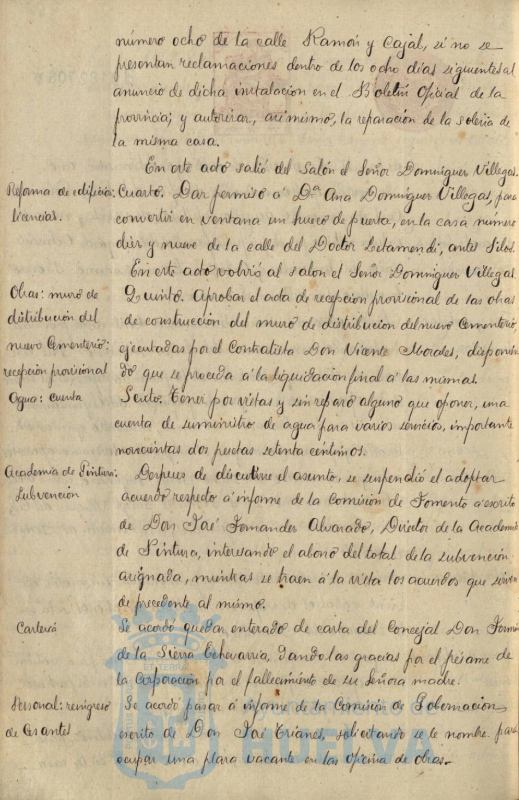 número ocho de la calle Ramón y Cajal, si no se
presentan reclamaciones dentro de los ocho días siguientes al
anuncio de dicha instalación en el Boletín Oficial de la
provincia; y autorizar, asimismo, la reparación de la solería de
la misma casa.
En este acto salió del Salón el Señor Domínguez Villegas.
Reforma de edificio:
licencias.
Cuarto. Dar permiso á Dª Ana Domínguez Villegas, para
convertir en ventana un hueco de puerta, en la casa número
diez y nueve de la calle del Doctor Letamendi, antes Silos.
En este acto volvió al salon el Señor Domínguez Villegas.
Obras: muro de
distribución del
nuevo Cementerio:
recepción provisional
Quinto. Aprobar el acta de recepcion provisional de las obras
de construcción del muro de distribucion del nuevo Cementerio,
ejecutadas por el Contratista Don Vicente Mordes, disponien-
do que se proceda á la liquidación final á las mismas.
Agua: cuenta
Sexto. Tener por vistas y sin reparo alguno que oponer, una
cuenta de suministro de agua para varios servicios, importante
novecientas dos pesetas setenta céntimos.
Academia de Pintura:
Subvención
Despues de discutirse el asunto, se suspendió el adoptar
acuerdo respecto á informe de la Comisión de Fomento á escrito
de Don José Fernandez Alvarado, Director de la Academia
de Pintura, interesando el abono del total de la subvención
asignada, mientras se traen á la vista los acuerdos que sirven
de precedente al mismo.
Cartería
Se acordó quedar enterado de carta del Concejal Don Fermín
de la Sierra Echevarría, dando las gracias por el pésame de
la Corporación por el fallecimiento de su Señora madre.
Personal: reingreso
de Cesantes
Se acordó pasar á informe de la Comisión de Gobernacion,
escrito de Don José Trianes, solicitando se le nombre para
ocupar una plaza vacante en las oficina de obras.
HUELVA